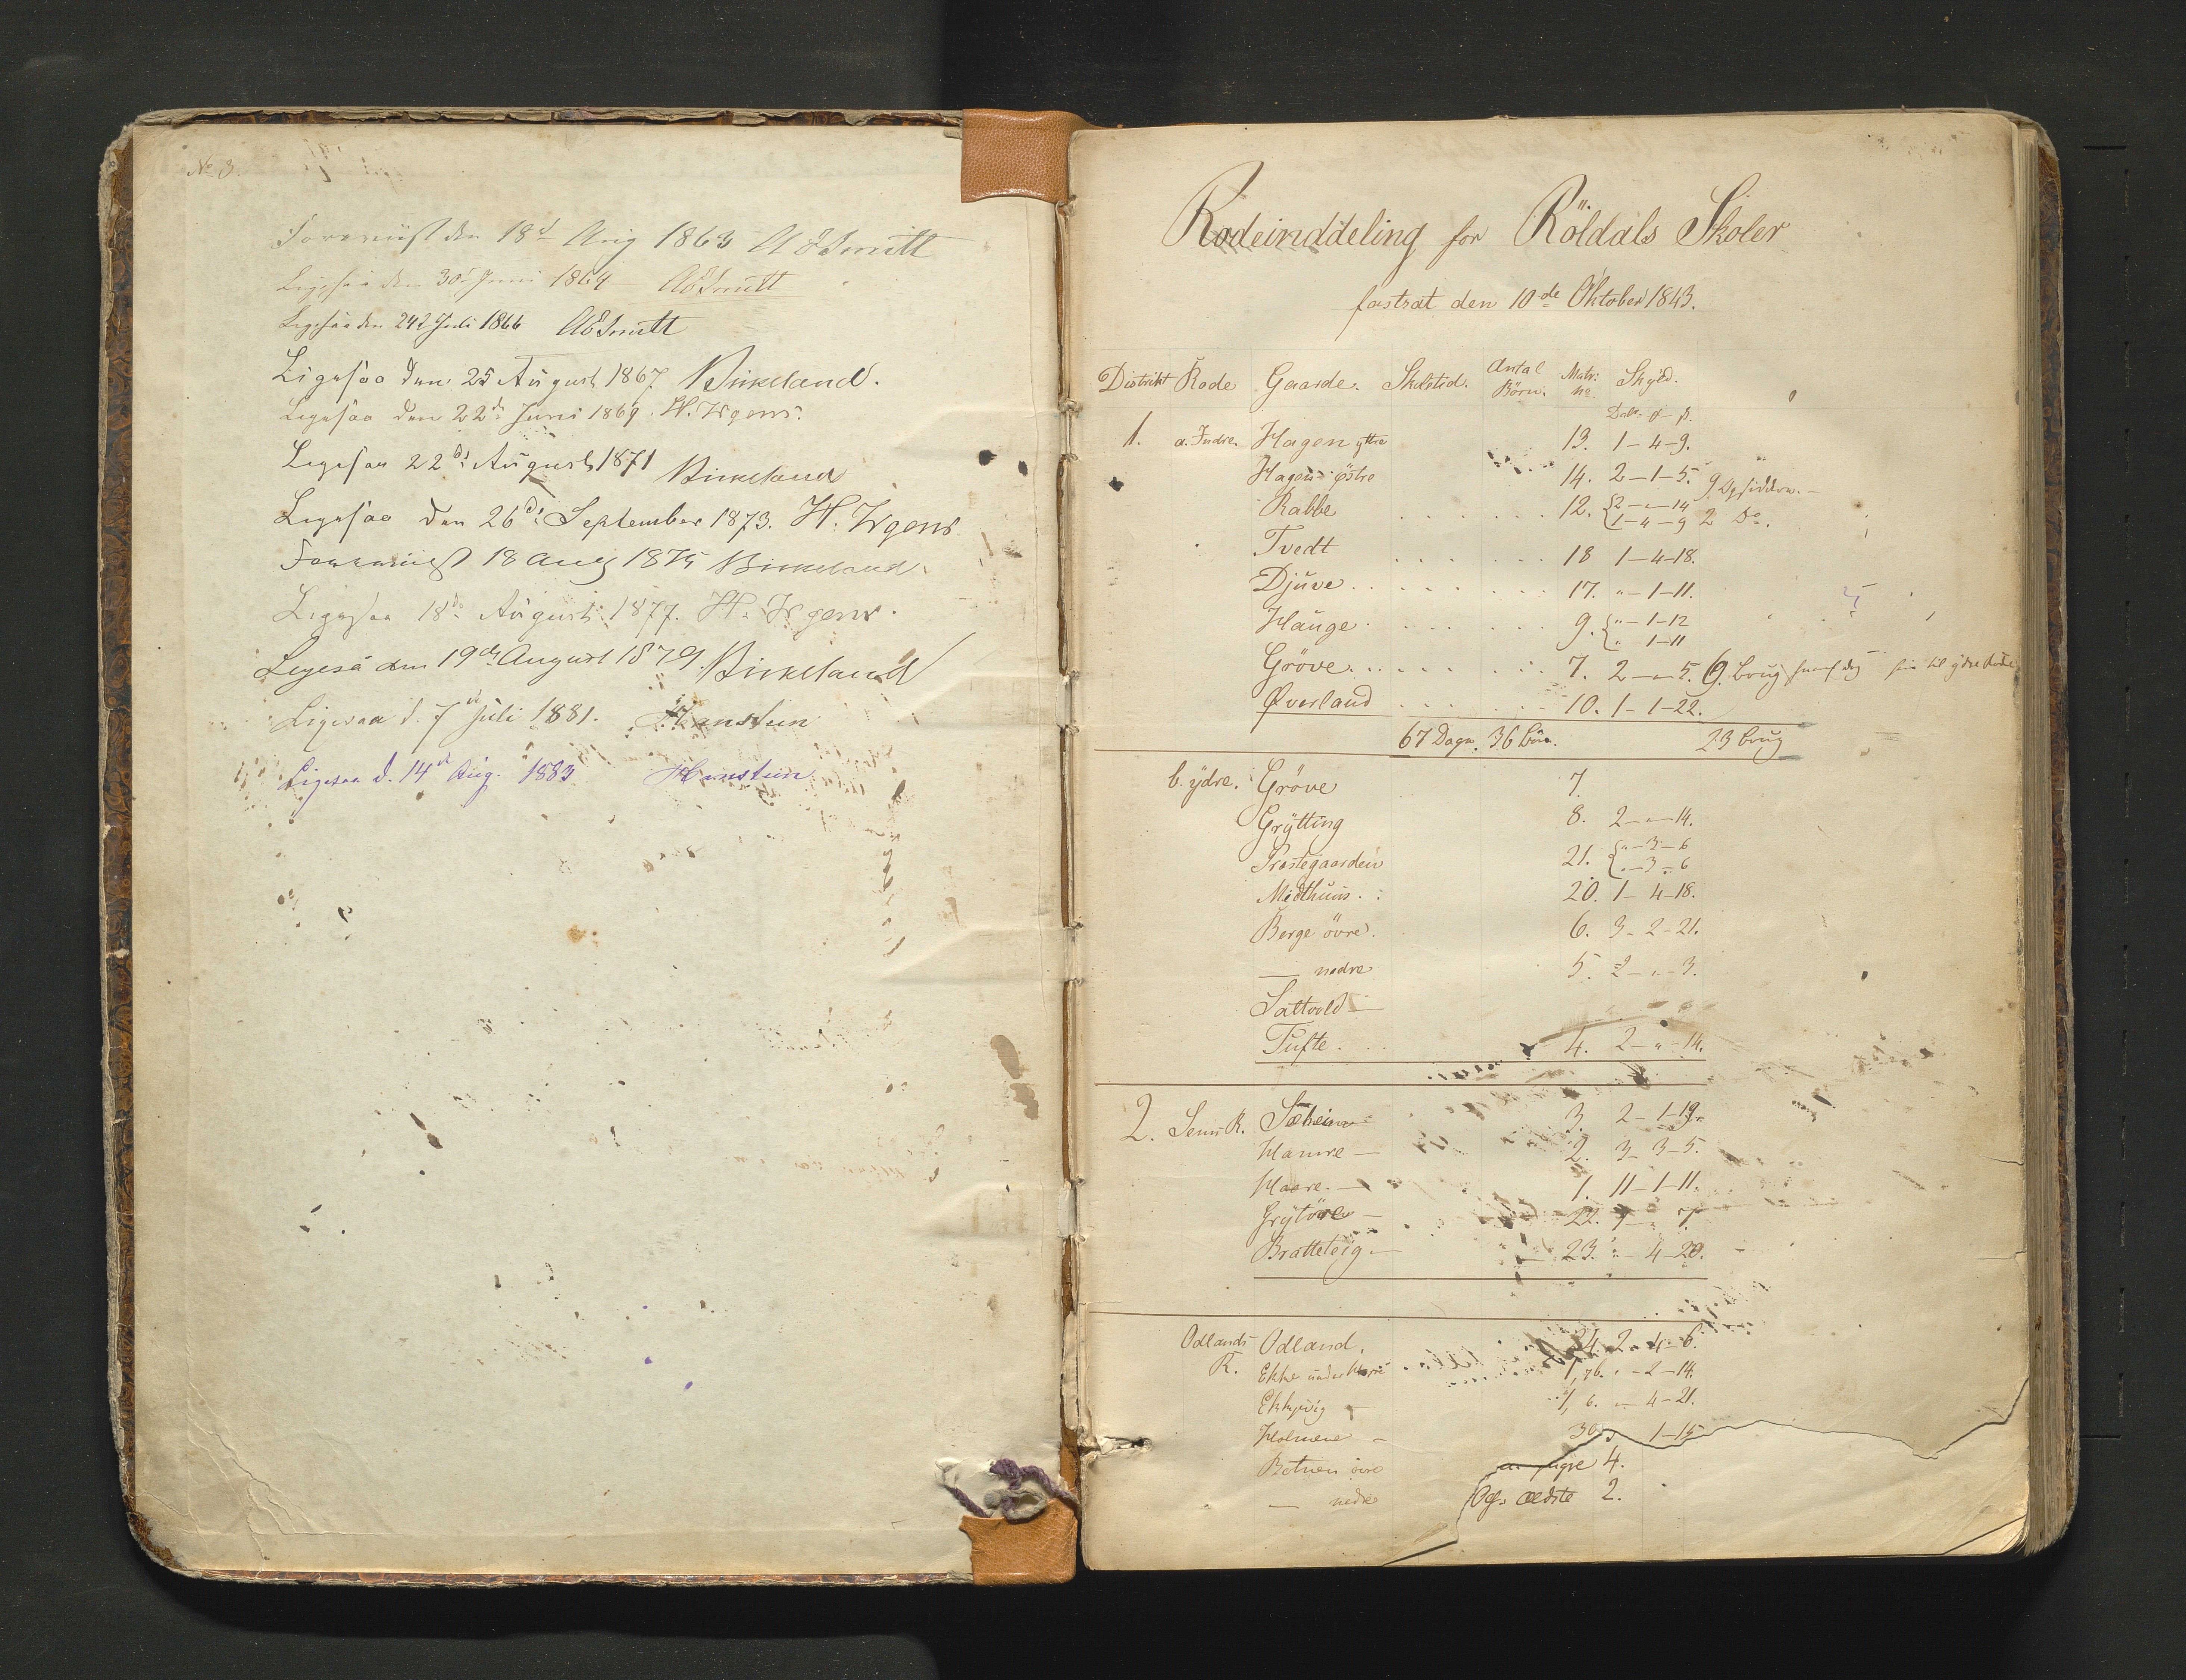 No 3.
Foreviist den 18d Aug 1863 A E Smitt
Ligesaa den 30d Juni 1864 AESmitt
Ligesaa den 24d Juli 1866 AESmitt
Ligesaa den 25 August 1867 Birkeland.
Ligesaa den 22d Juni 1869. H. Irgens.
Ligesaa 22de August 1871 Birkeland
Ligesaa den 26de September 1873. H. Irgens
Foreviist 18 Aug 1875 Birkeland.
Ligesaa 18de August 1877. H. Irgens.
Ligeså den 19de August 1879. Birkeland
Ligesaa d. 7de Juli 1881. Hansteen
Ligesaa d. 14de Aug. 1883. Hansteen
Rodeinddeling for Röldals Skoler
fastsat den 10de Oktober 1843.
Distrikt Rode Gaarde. Skoletid. Antal Börn. Matr: No. Skyld.
Dal. ß.
1. a. Indre. Hagen yttre 13. 1-4-9.
Hagen östre 14. 2-1-5. 9 Opsiddere.
Rabbe 12. {2-"-14
1-4-9 2 Do.
Tvedt 18 1-4-18.
Djuve 17. "-1-11.
Hauge 9. {"-1-12
"-1-11
Gröve 7. 2-"-5. 6. brug til ydre Rode
Øverland 10. 1-1-22.
67 Dage. 36 börn. 23 brug
b. ydre. Gröve 7.
Grytting 8. 2-"-14.
Prestegaarden 21. {"-3-6
"-3-6
Midthuus 20. 1-4-18.
Berge övre. 6. 3-2-21.
— nedre 5. 2-"-3.
Saltvold —
Tufte 4. 2-"-14.
2. R. Sæheim 3. 2-1-19.
Hamre — 2. 3-3-5.
Haare — 1. 11-1-11.
Grytöre — 22.
Bratteteig — 23. "-4-20.
Odlands R. Odland. 24. 2-4-6.
Ekke under "-2-14.
Ekkjevig — 1, 6. "-4-21.
Holmene — 30. 1-15
Botnen övre yngre 4.
— nedre Ogs. ældste 2.